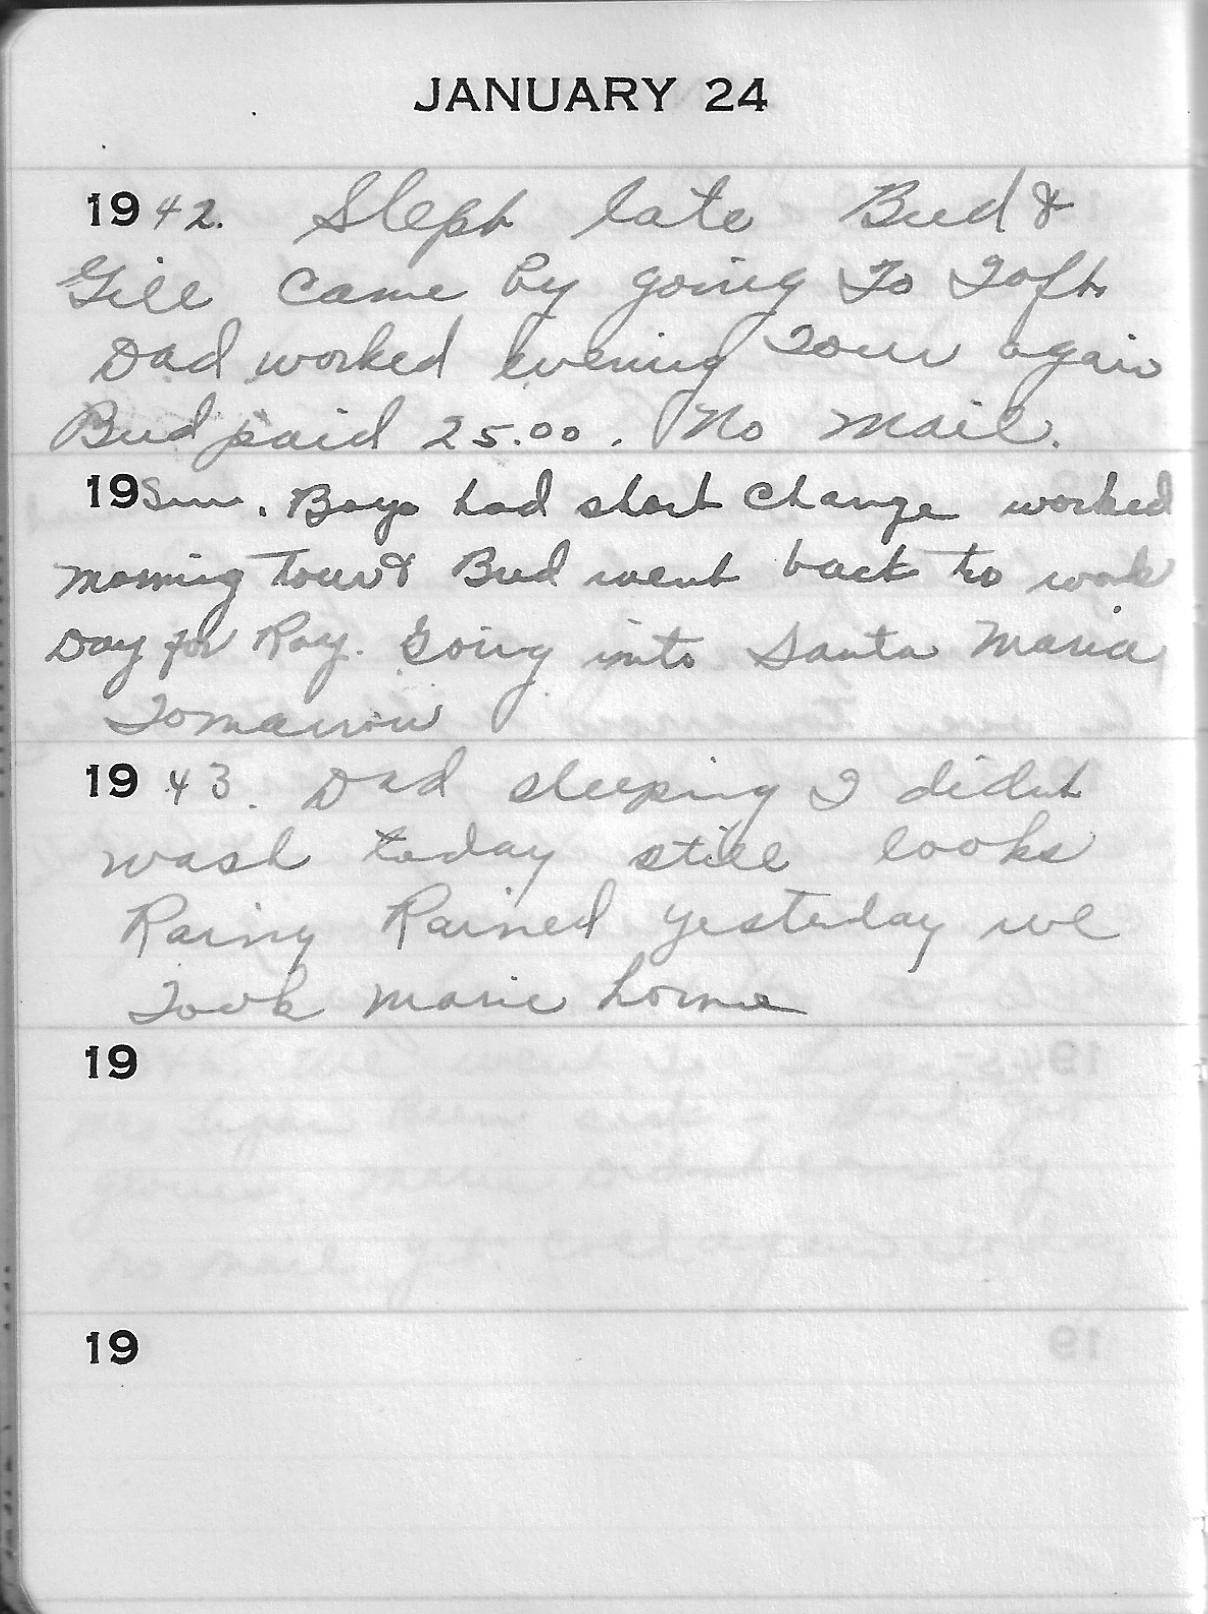 JANUARY 24
1942. Slept late Bud &
Gill came by going To Taft.
Dad worked evening Tour again
Bud paid 25.00. No mail.
19Sun. Boys had short change worked
morning Tour & Bud went back to work
Day for Ray. Going into Santa Maria
Tomarrow
1943. Dad sleeping I didnt
wash today still looks
Rainy Rained yesterday we
Took Marie home
19
19